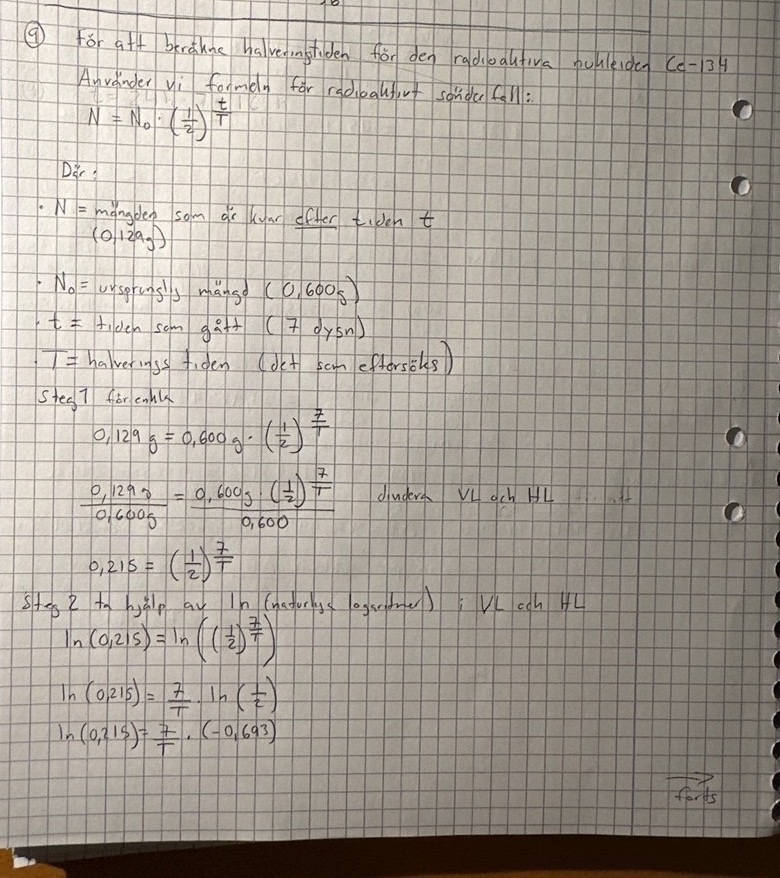 9) För att beräkna halveringstiden för den radioaktiva nukleiden Ce-134
Använder vi formeln för radioaktivt sönderfall:
N = N₀ · (1/2)^(t/T)
Där:
· N = mängden som är kvar efter tiden t
(0,129g)
· N₀ = ursprunglig mängd (0,600g)
· t = tiden som gått (7 dygn)
· T = halverings tiden (det som eftersöks)
Steg 1 förenkla
0,129 g = 0,600 g · (1/2)^(7/T)
0,129 g / 0,600 g = 0,600 g · (1/2)^(7/T) / 0,600 dividera VL och HL
0,215 = (1/2)^(7/T)
Steg 2 ta hjälp av ln (naturliga logaritmer) i VL och HL
ln (0,215) = ln ((1/2)^(7/T))
ln (0,215) = 7/T · ln (1/2)
ln (0,215) = 7/T · (-0,693)
→
forts